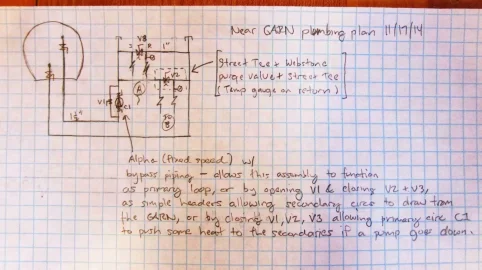 Near GARN plumbing plan 11/17/14
V3
1"
Street Tee + Webstone
purge valve + Street Tee
(Temp gauge on return)
V2
A
V1
C1
B
1¼"
Alpha (fixed speed) w/
bypass piping - allows this assembly to function
as primary loop, or by opening V1 & closing V2 + V3,
as simple headers allowing secondary circs to draw from
the GARN, or by closing V1, V2, V3 allowing primary circ C1
to push some heat to the secondaries if a pump goes down.